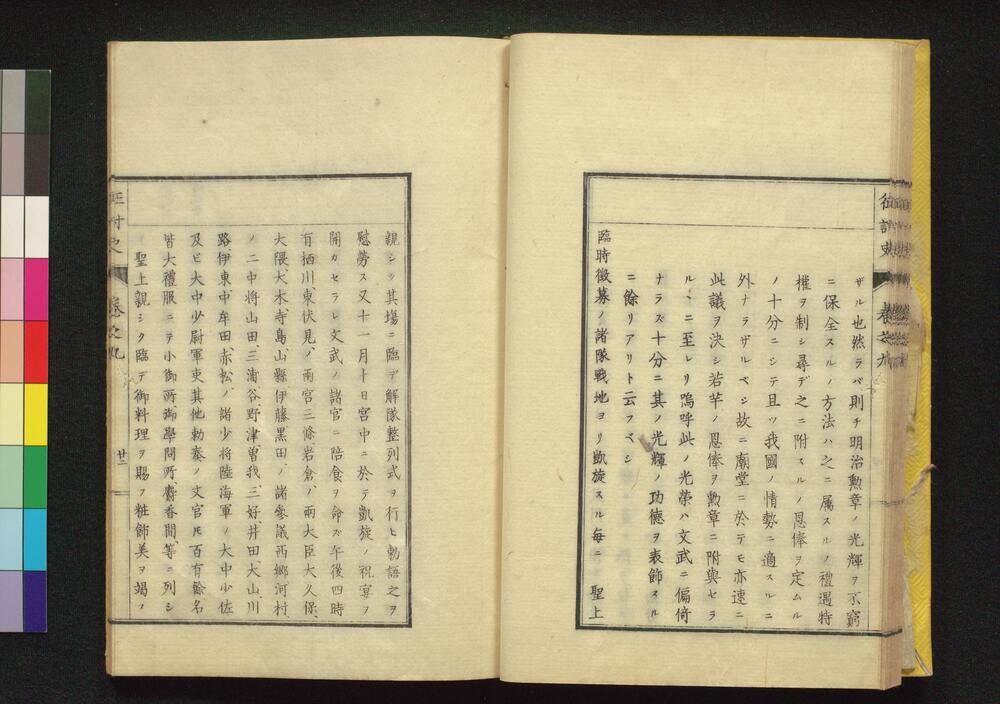 ザル也然ラバ則チ明治勲章ノ光輝ヲ不窮
ニ保全スルノ方法ハ之ニ属スルノ禮遇特
權ヲ制シ尋デ之ニ附スルノ恩俸ヲ定ムル
ノ十分ニシテ且ツ我國ノ情勢ニ適スルニ
外ナラザルベシ故ニ廟堂ニ於テモ亦速ニ
此議ヲ決シ若干ノ恩俸ヲ勲章ニ附與セラ
ルヽニ至レリ嗚呼此ノ光榮ハ文武ニ偏倚
ナラズ十分ニ其ノ光輝ノ功德ヲ表飾スル
ニ餘リアリト云フベシ
臨時徴募ノ諸隊戰地ヨリ凱旋スル毎ニ 聖上
親シク其場ニ臨デ解隊整列式ヲ行ヒ勅語之ヲ
慰勞ス又十一月十日宮中ニ於テ凱旋ノ祝宴ヲ
開カセラレ文武ノ諸官ニ陪食ヲ命ズ午後四時
有栖川、東伏見ノ兩宮三條、岩倉ノ兩大臣大久保、
大隈、大木、寺島、山縣、伊藤、黒田ノ諸參議西郷、河村、
ノ二中將山田、三浦、谷、野津、曽我、三好、井田、大山、川
路、伊東、中牟田、赤松ノ諸少將陸海軍ノ大中少佐
及ビ大中少尉軍吏其他勅奏ノ文官凡百有餘名
皆大禮服ニテ小御所御學問所麝香間等ニ列シ
聖上親シク臨デ御料理ヲ賜フ粧飾美ヲ竭フ
征討史
巻之九
廿二